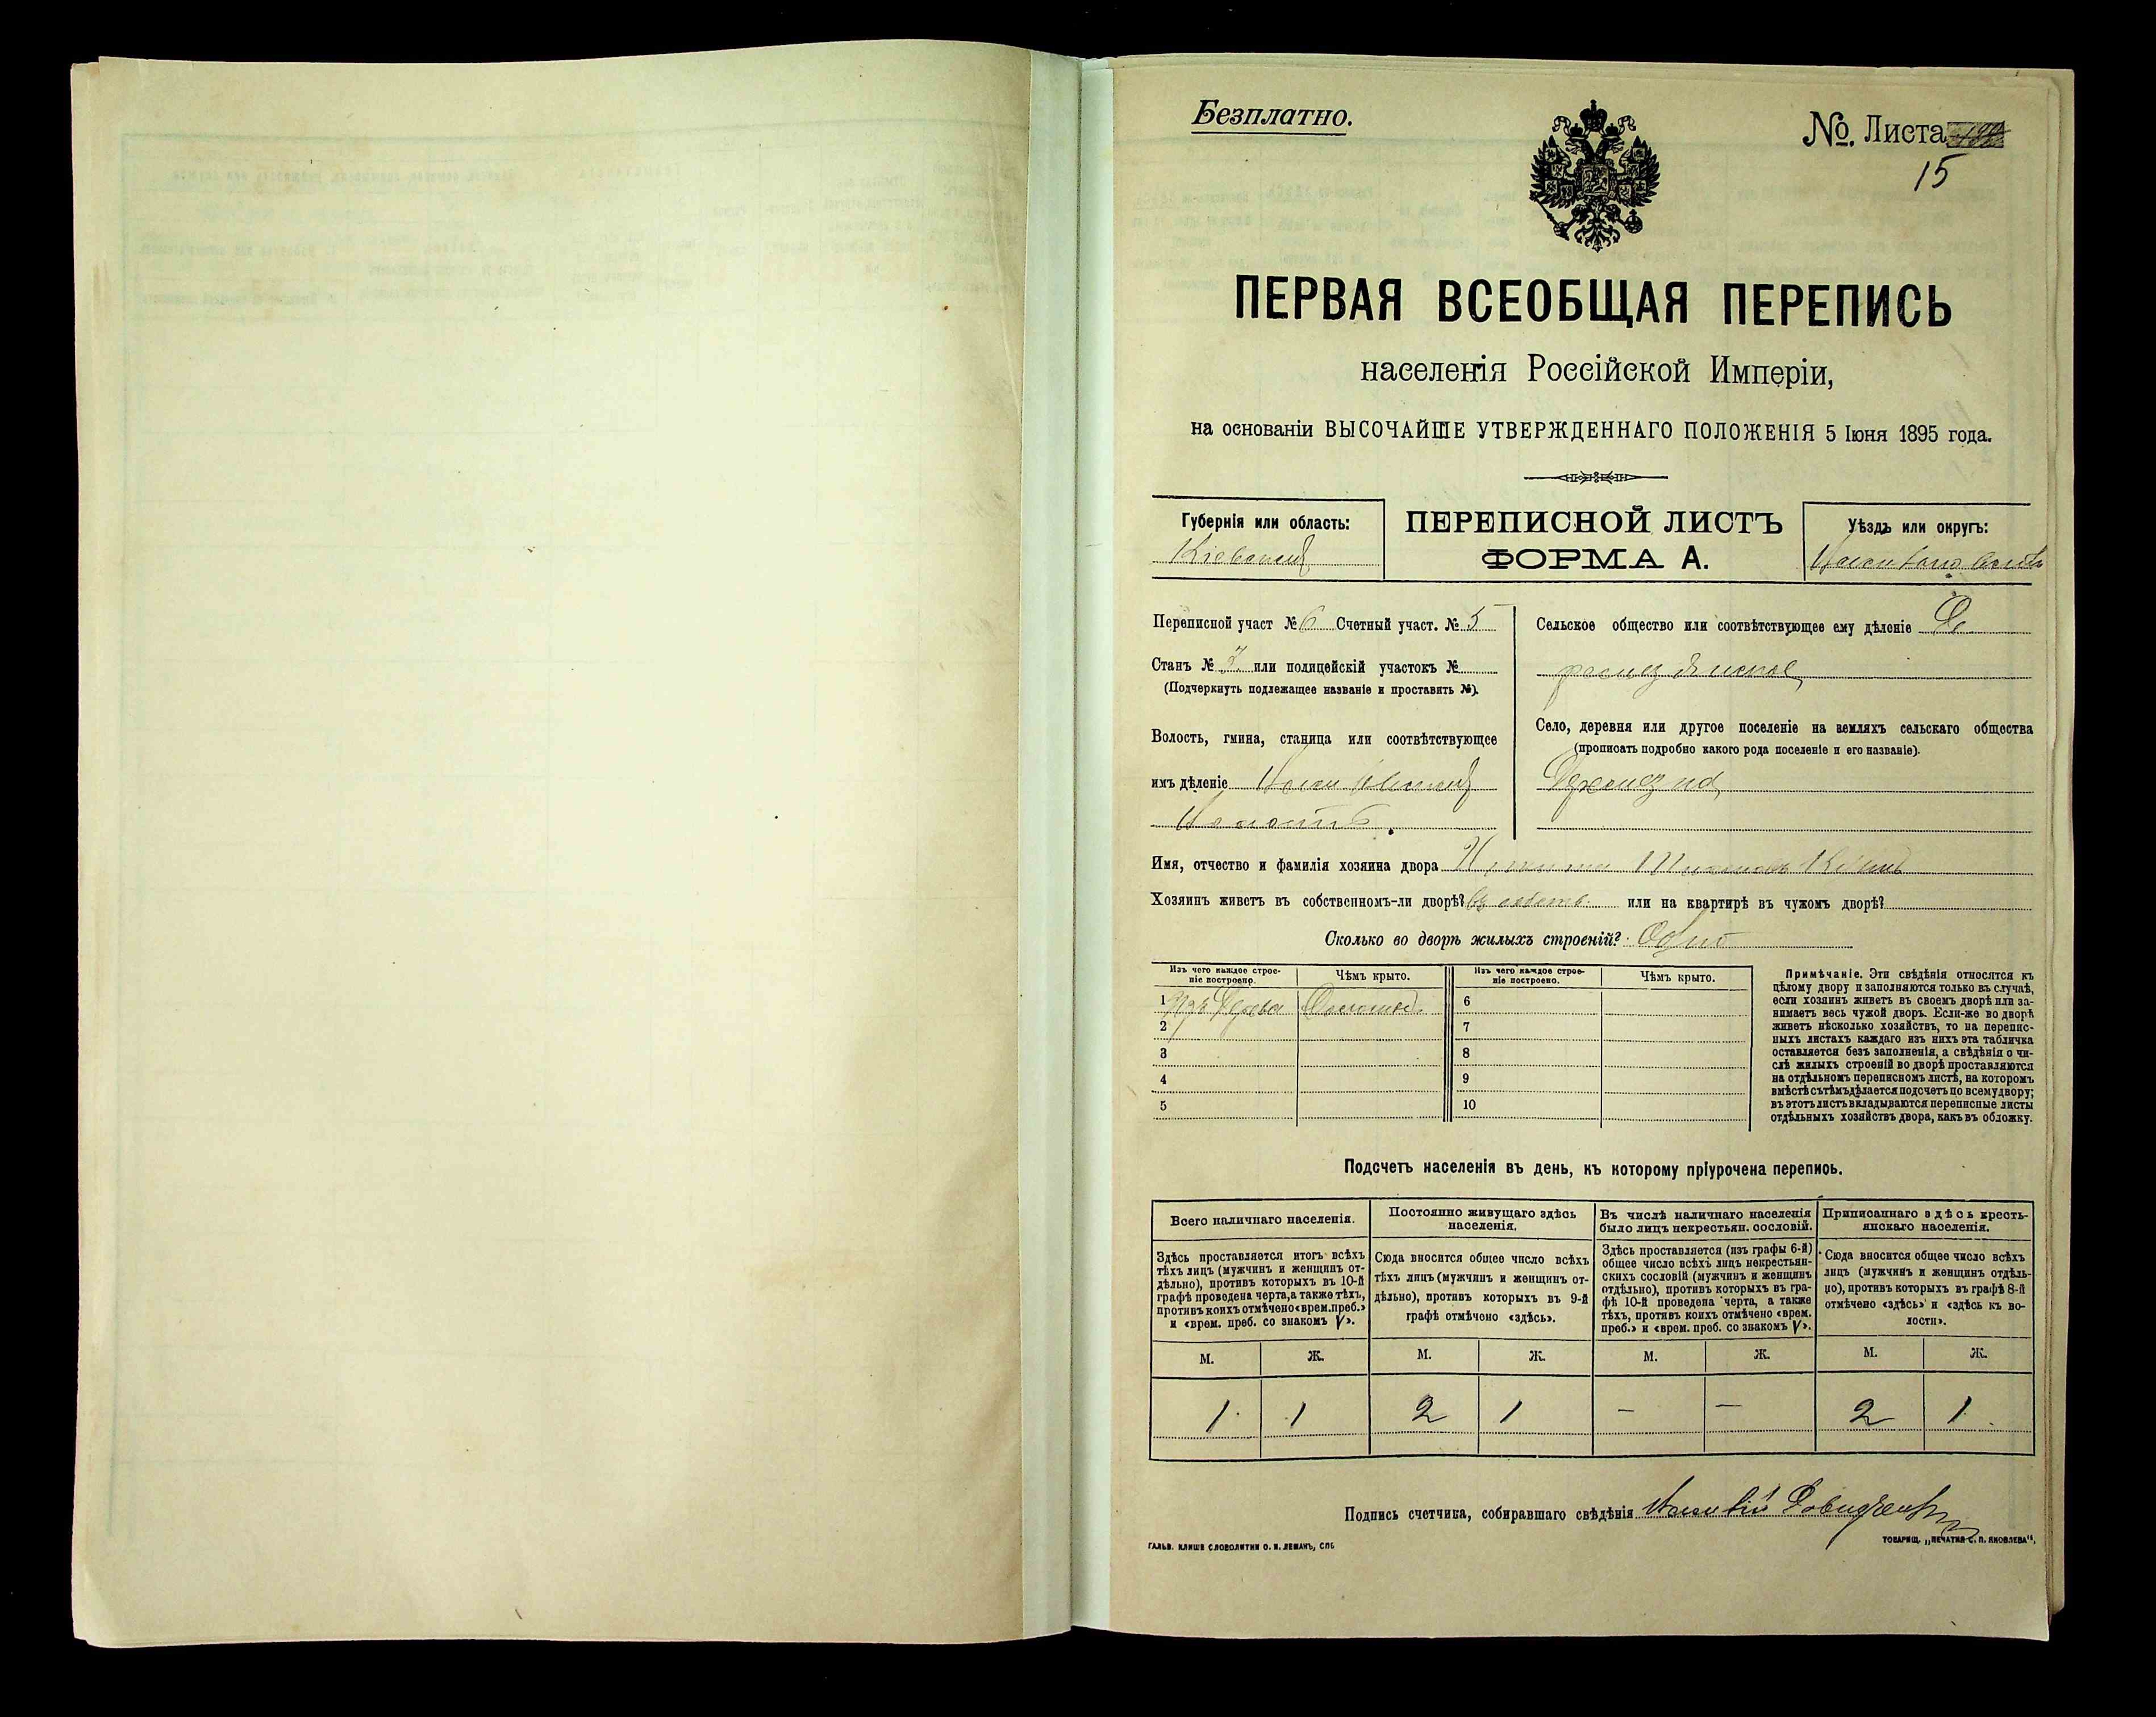 Безплатно.
№. Листа
15
ПЕРВАЯ ВСЕОБЩАЯ ПЕРЕПИСЬ
населенія Россійской Имперіи,
на основаніи ВЫСОЧАЙШЕ УТВЕРЖДЕННАГО ПОЛОЖЕНІЯ 5 Іюня 1895 года.
Губернія или область:
Кіевская
ПЕРЕПИСНОЙ ЛИСТЪ
ФОРМА А.
Уѣздъ или округъ:
Переписной участ № 6 Счетный участ. № 5
Станъ № или полицейскій участокъ №
(Подчеркнуть подлежащее названіе и проставить №).
Волость, гмина, станица или соотвѣтствующее
имъ дѣленіе
Волость
Сельское общество или соотвѣтствующее ему дѣленіе
Село, деревня или другое поселеніе на земляхъ сельскаго общества
(прописать подробно какого рода поселеніе и его названіе).
Имя, отчество и фамилія хозяина двора
Хозяинъ живетъ въ собственномъ-ли дворѣ? въ собств. или на квартирѣ въ чужомъ дворѣ?
Сколько во дворѣ жилыхъ строеній? Одно
Изъ чего каждое строе-
ніе построено.
Чѣмъ крыто.
Изъ чего каждое строе-
ніе построено.
Чѣмъ крыто.
1 Изъ дерева Соломой. 6
2 7
3 8
4 9
5 10
Примѣчаніе. Эти свѣдѣнія относятся къ
цѣлому двору и заполняются только въ случаѣ,
если хозяинъ живетъ въ своемъ дворѣ или за-
нимаетъ весь чужой дворъ. Если-же во дворѣ
живетъ нѣсколько хозяйствъ, то на перепис-
ныхъ листахъ каждаго изъ нихъ эта табличка
оставляется безъ заполненія, а свѣдѣнія о чи-
слѣ жилыхъ строеній во дворѣ проставляются
на отдѣльномъ переписномъ листѣ, на которомъ
вмѣстѣ съ тѣмъ дѣлается подсчетъ по всему двору;
въ этотъ листъ вкладываются переписные листы
отдѣльныхъ хозяйствъ двора, какъ въ обложку.
Подсчетъ населенія въ день, къ которому пріурочена перепись.
Всего наличнаго населенія.
Здѣсь проставляется итогъ всѣхъ
тѣхъ лицъ (мужчинъ и женщинъ от-
дѣльно), противъ которыхъ въ 10-й
графѣ проведена черта, а также тѣхъ,
противъ коихъ отмѣчено «врем. преб.»
и «врем. преб. со знакомъ V».
Постоянно живущаго здѣсь
населенія.
Сюда вносится общее число всѣхъ
тѣхъ лицъ (мужчинъ и женщинъ от-
дѣльно), противъ которыхъ въ 9-й
графѣ отмѣчено «здѣсь».
Въ числѣ наличнаго населенія
было лицъ некрестьян. сословій.
Здѣсь проставляется (изъ графы 6-й)
общее число всѣхъ лицъ некрестьян-
скихъ сословій (мужчинъ и женщинъ
отдѣльно), противъ которыхъ въ гра-
фѣ 10-й проведена черта, а также
тѣхъ, противъ коихъ отмѣчено «врем.
преб.» и «врем. преб. со знакомъ V».
Приписаннаго здѣсь кресть-
янскаго населенія.
Сюда вносится общее число всѣхъ
лицъ (мужчинъ и женщинъ отдѣль-
но), противъ которыхъ въ графѣ 8-й
отмѣчено «здѣсь» и «здѣсь къ во-
лости».
М. Ж. М. Ж. М. Ж. М. Ж.
1 1 2 1 — — 2 1
Подпись счетчика, собиравшаго свѣдѣнія
ГАЛЬВ. КЛИШЕ СЛОВОЛИТНИ О. И. ЛЕМАНЪ, СПБ
ТОВАРИЩ. „ПЕЧАТНЯ С. П. ЯКОВЛЕВА“,